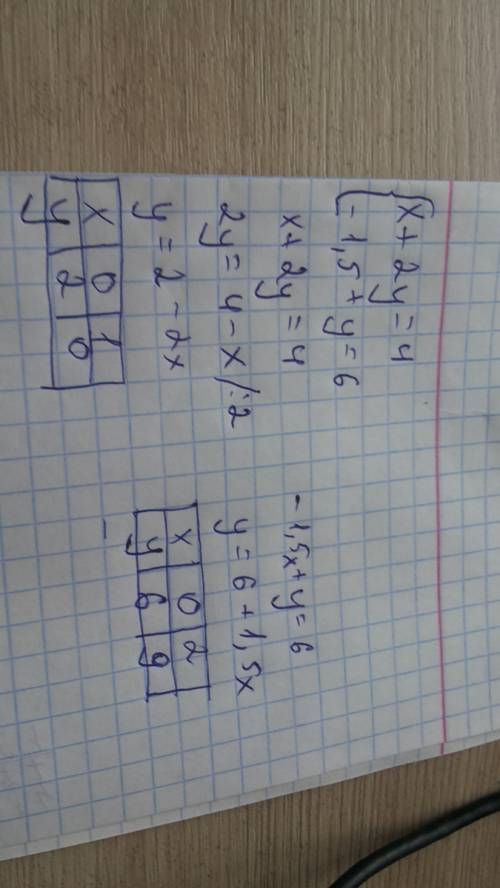 {x + 2y = 4
-1,5 + y = 6
x + 2y = 4
2y = 4 - x /:2
y = 2 - 2x
x 0 1
y 2 0
-1,5x + y = 6
y = 6 + 1,5x
x 0 2
y 6 9